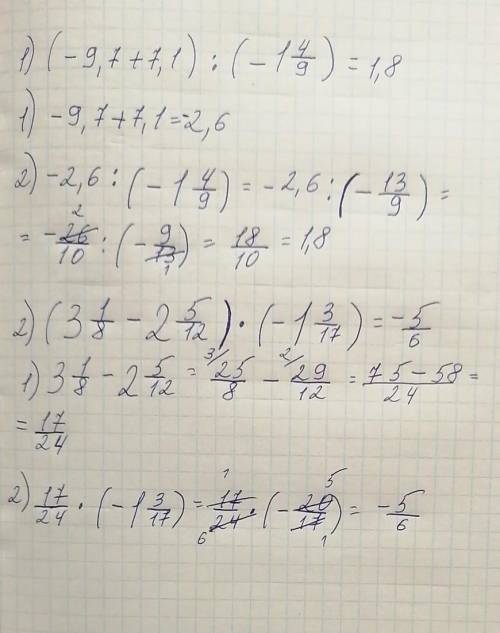 1) (-9,7+7,1) : (-1 4/9) = 1,8
1) -9,7+7,1=-2,6
2) -2,6 : (-1 4/9) = -2,6 : (-13/9) =
2
= -26/10 : (-9/13) = 18/10 = 1,8
1
2) (3 1/8 - 2 5/12) · (-1 3/17) = -5/6
1) 3 1/8 - 2 5/12 = 3/ 25/8 - 2/ 29/12 = 75-58/24 =
= 17/24
1 5
2) 17/24 · (-1 3/17) = 17/24 · (-20/17) = -5/6
6 1